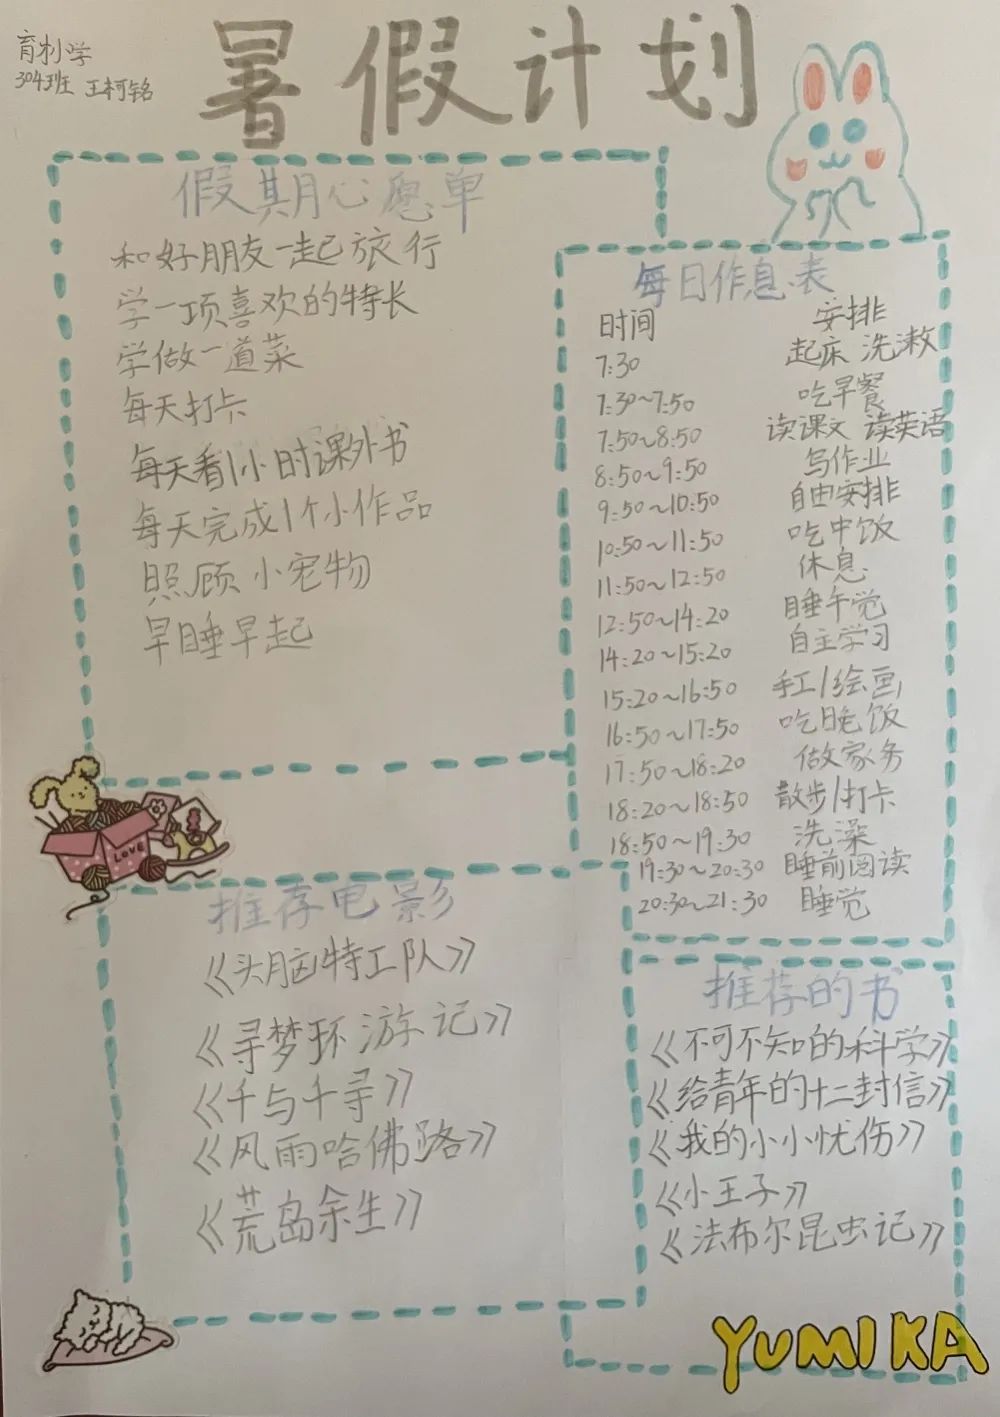 育才学
304班 王柯铭
暑假计划
假期心愿单
和好朋友一起旅行
学一项喜欢的特长
学做一道菜
每天打卡
每天看1小时课外书
每天完成1个小作品
照顾小宠物
早睡早起
每日作息表
时间 安排
7:30 起床 洗漱
7:30~7:50 吃早餐
7:50~8:50 读课文 读英语
8:50~9:50 写作业
9:50~10:50 自由安排
10:50~11:50 吃中饭
11:50~12:50 休息
12:50~14:20 睡午觉
14:20~15:20 自主学习
15:20~16:50 手工/绘画
16:50~17:50 吃晚饭
17:50~18:20 做家务
18:20~18:50 散步/打卡
18:50~19:30 洗澡
19:30~20:30 睡前阅读
20:30~21:30 睡觉
LOVE
推荐电影
《头脑特工队》
《寻梦环游记》
《千与千寻》
《风雨哈佛路》
《荒岛余生》
推荐的书
《不可不知的科学》
《给青年的十二封信》
《我的小小忧伤》
《小王子》
《法布尔昆虫记》
YUMIKA